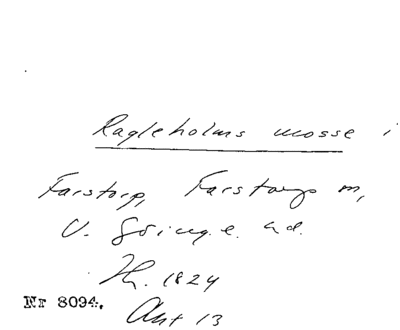 Ragleholms mosse i
Farstorp, Farstorps m,
V. Göinge hd.
Th. 1824
Nr 8094. Akt 13